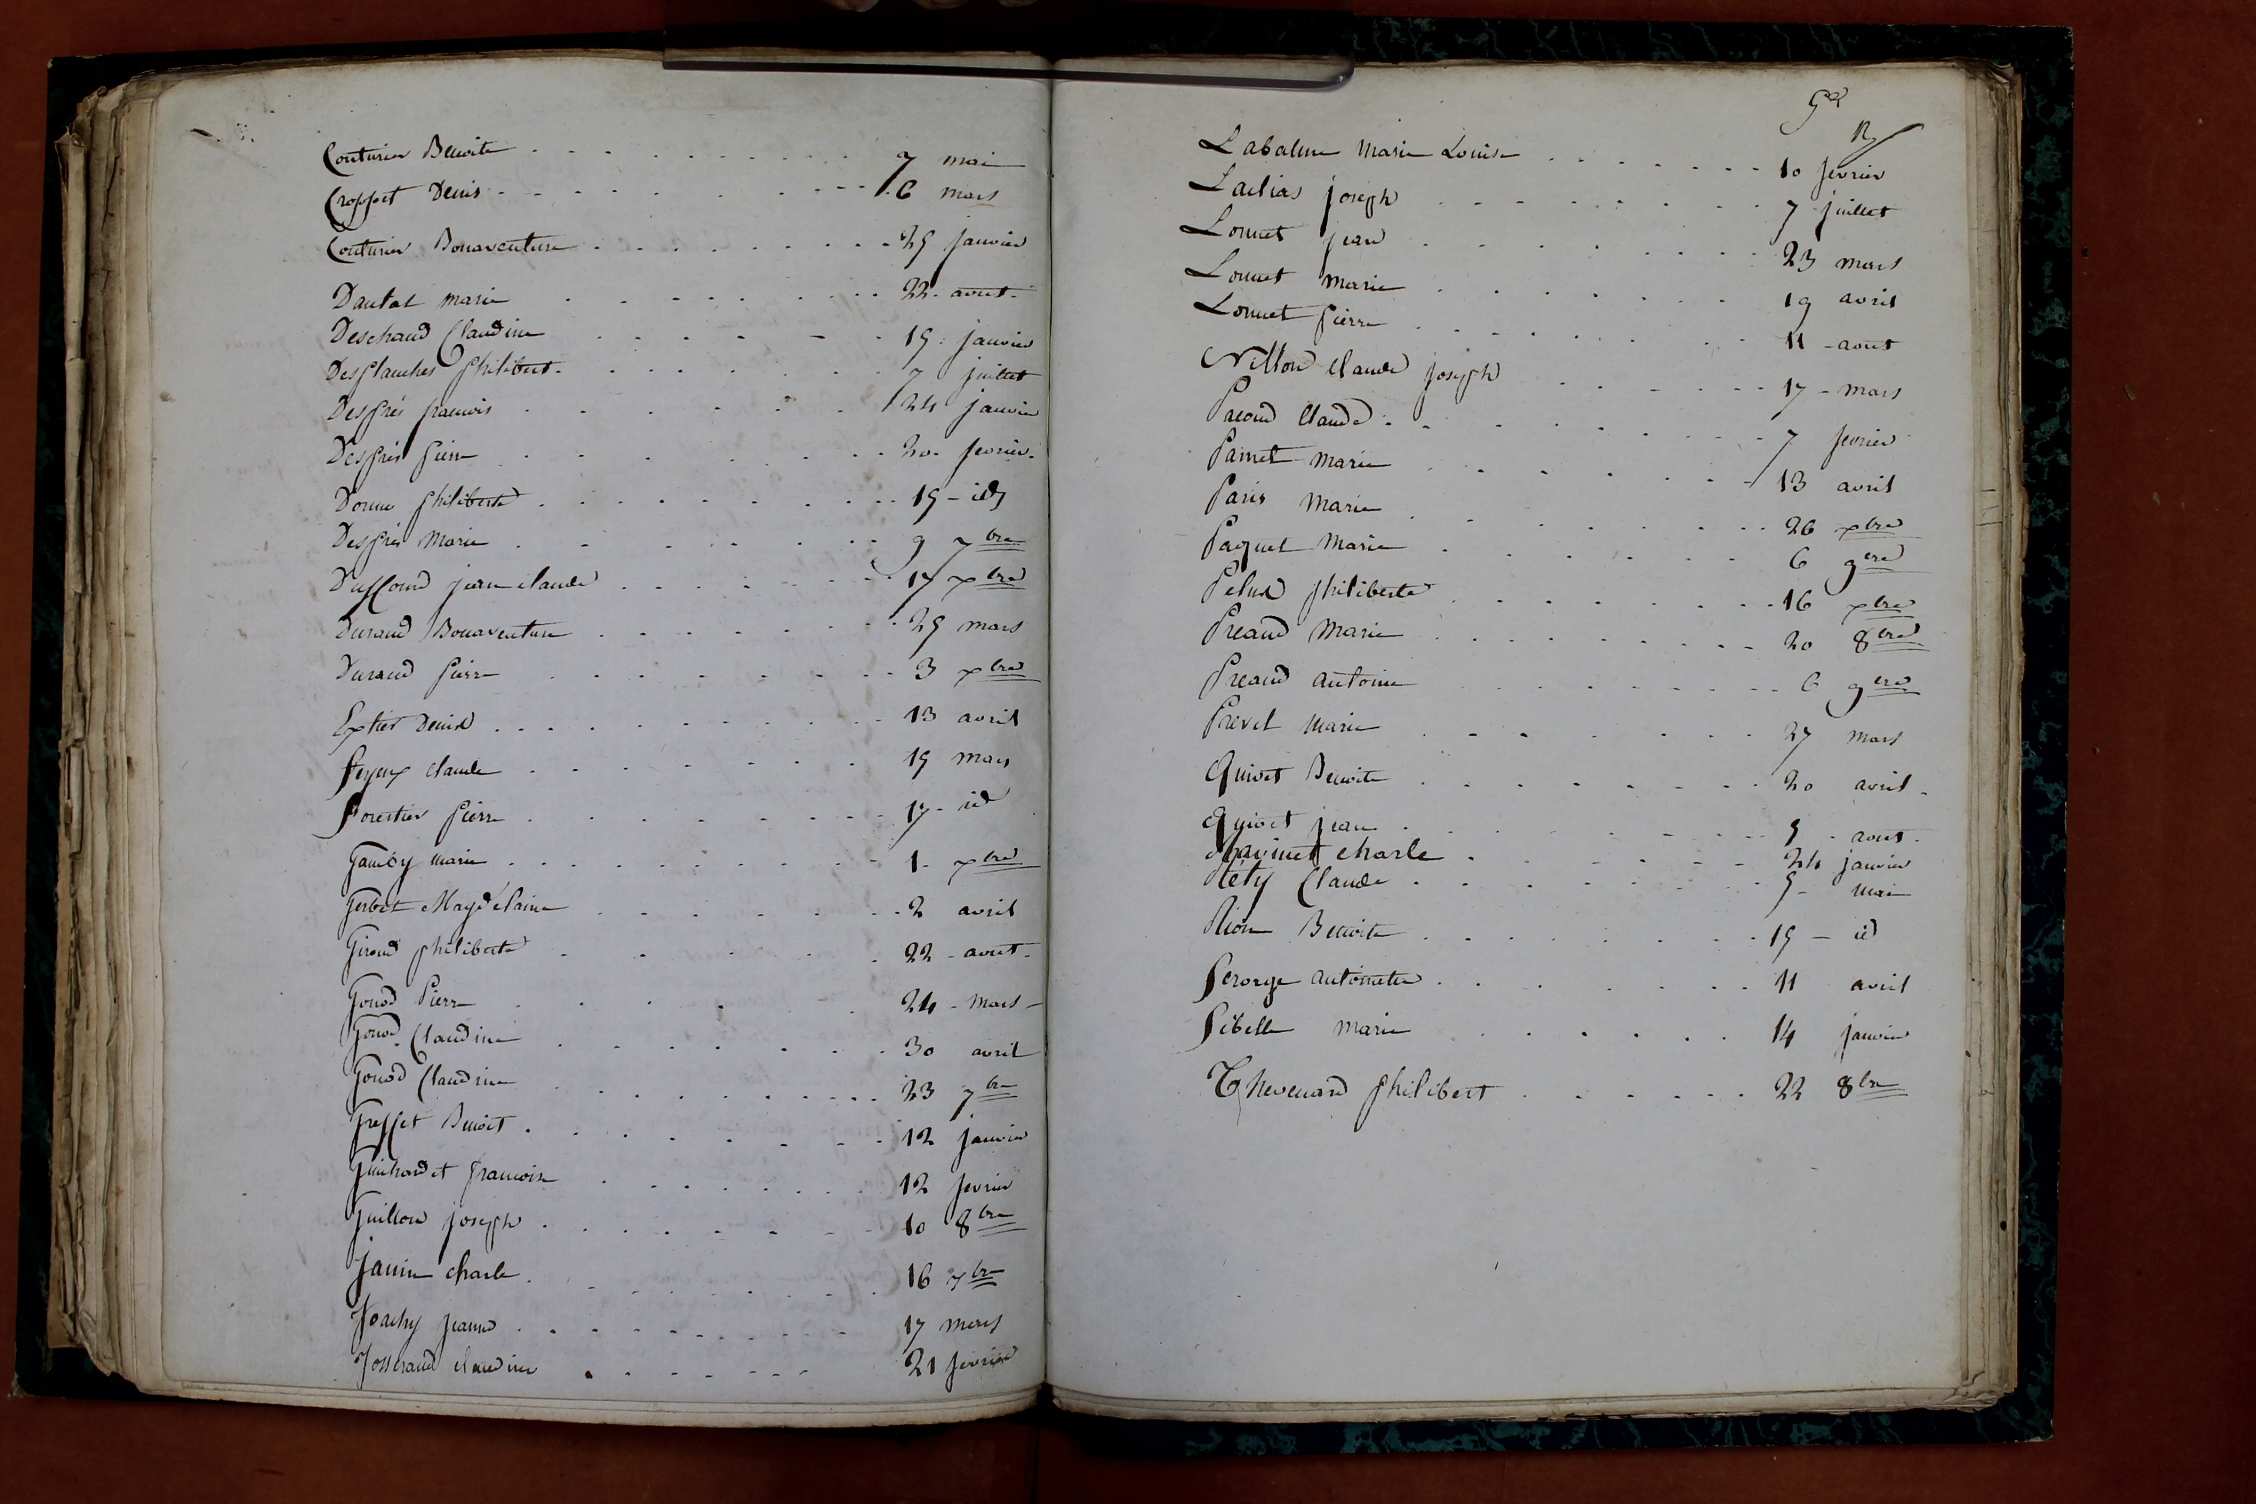 Couturier Benoite 7 mai
Croppet Denis 6 mars
Couturier Bonaventure 25 janvier
Dautat marie 22 aout
Deschaud Claudine 15 janvier
Desplanches philibert 7 juillet
Desprès francois 24 janvier
Desprès pierre 20 fevrier
Dorme philiberte 15 id
Desprès Marie 9 7bre
Duffourd jean claude 17 xbre
Durand Bonaventure 25 mars
Durand pierre 3 xbre
Extier Denise 13 avril
feyeux claude 15 mars
forestier pierre 17 id
Gamby marie 1 xbre
Gerbet Magdélaine 2 avril
Giroud philiberte 22 aout
Gonod Pierre 24 mars
Gonod Claudine 30 avril
Gonod Claudine 23 7bre
Greffet Benoit 12 janvier
Guichardet francoise 12 fevrier
Guillon joseph 10 8bre
janin charle 16 7bre
Joachy jeanne 17 mars
Josserand claudine 21 fevrier
5e
R
Labalme Marie Louise 10 fevrier
Laclias joseph 7 juillet
Lonnet jean 23 mars
Lonnet marie 19 avril
Lonnet pierre 11 aout
Nillon Claude joseph 17 mars
Pacoud Claude 7 fevrier
Painet marie 13 avril
Paris Marie 26 xbre
Paquet Marie 6 9bre
Pelus philiberte 16 xbre
Preaud Marie 20 8bre
Preaud antoine 6 9bre
Prevel Marie 27 mars
Quivet Benoite 20 avril
Quivet jean 5 aout
Ravinet charle 24 janvier
Réty Claude 5 mai
Rion Benoite 15 id
Serorge antoinette 11 avril
Sibelle marie 14 janvier
Thevenard philibert 22 8bre